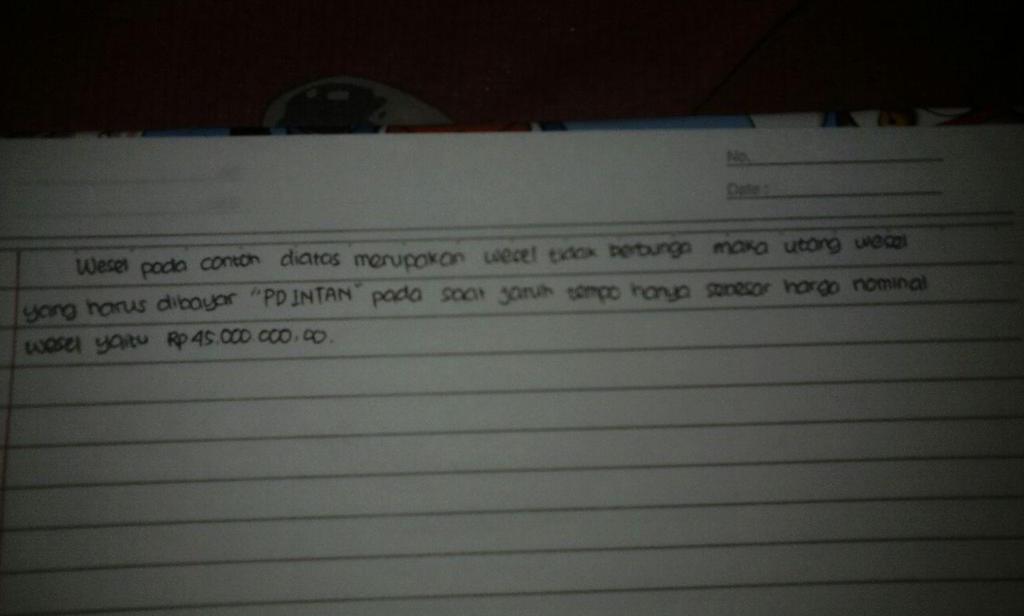 No.
Date :
Wesel pada contoh diatas merupakan wesel tidak berbunga maka utang wesel
yang harus dibayar "PD INTAN" pada saat jatuh tempo hanya sebesar harga nominal
wesel yaitu Rp 45.000.000,00.